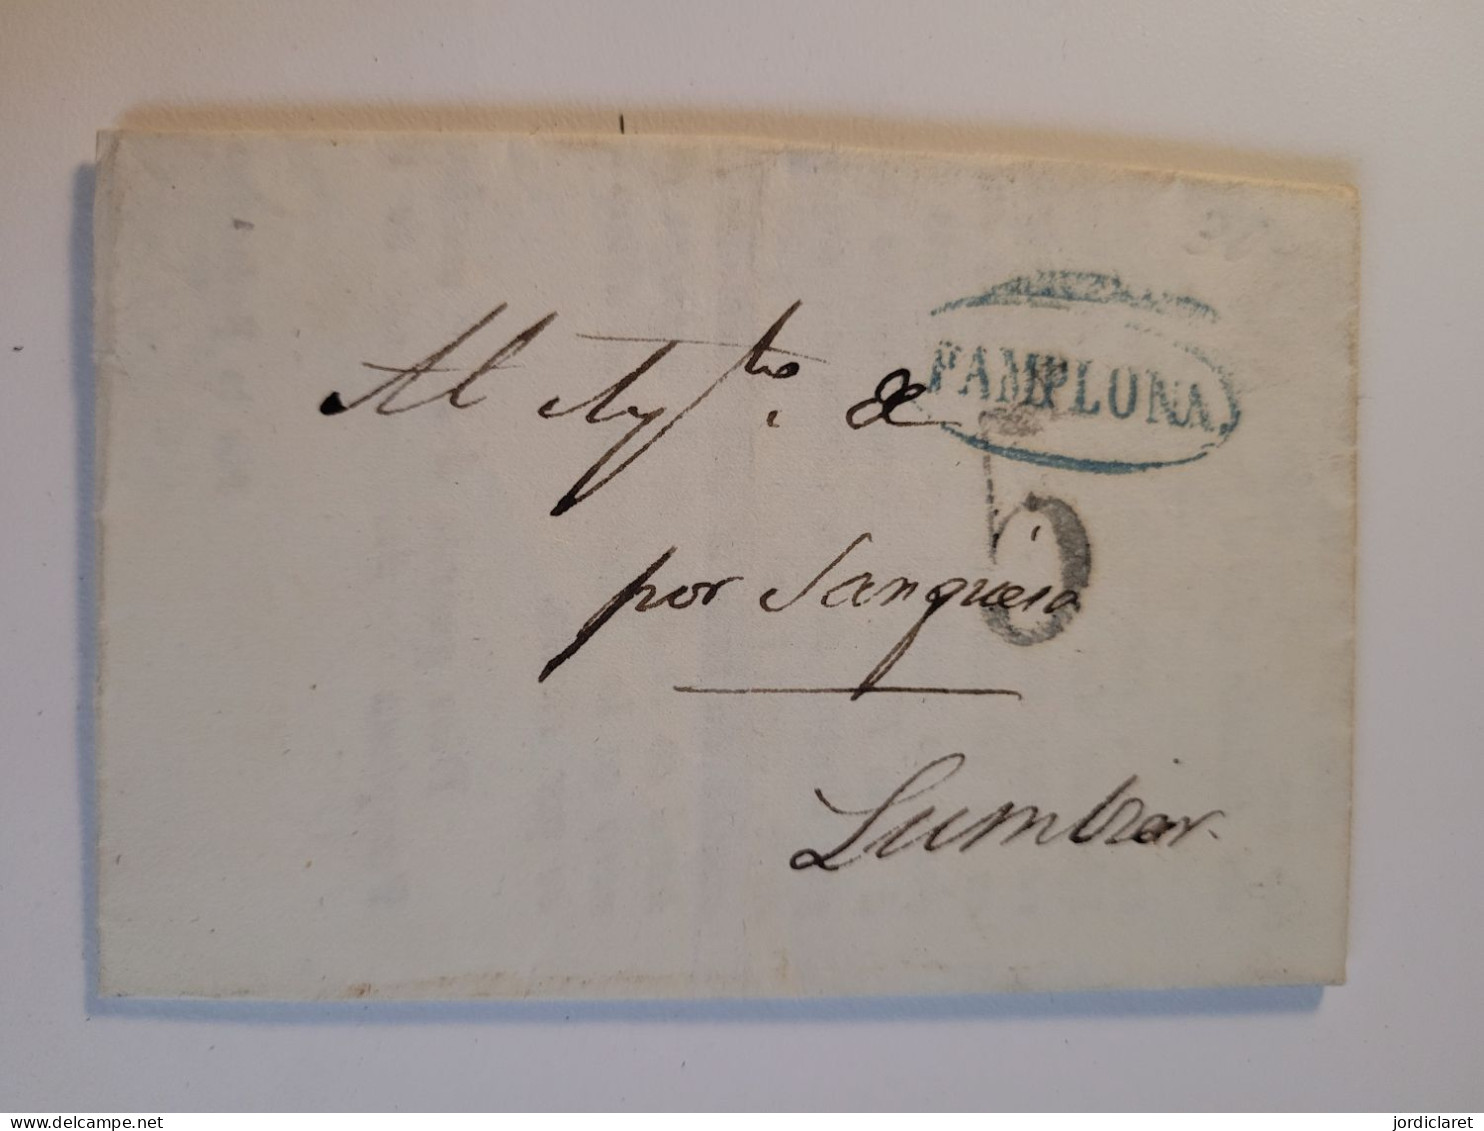 PAMPLONA
5
Al Ay.to de
por Sanguesa
Lumbier.
delcampe.net
jordiclaret